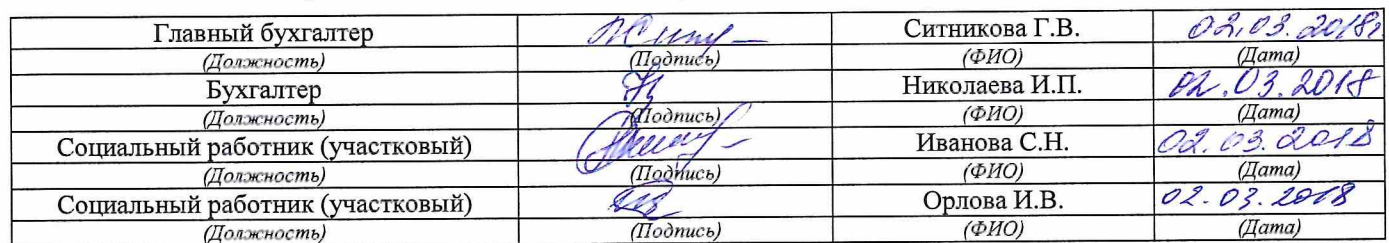 Главный бухгалтер Ситникова Г.В. 02.03.2018г
(Должность) (Подпись) (ФИО) (Дата)
Бухгалтер Николаева И.П. 02.03.2018
(Должность) (Подпись) (ФИО) (Дата)
Социальный работник (участковый) Иванова С.Н. 02.03.2018
(Должность) (Подпись) (ФИО) (Дата)
Социальный работник (участковый) Орлова И.В. 02.03.2018
(Должность) (Подпись) (ФИО) (Дата)